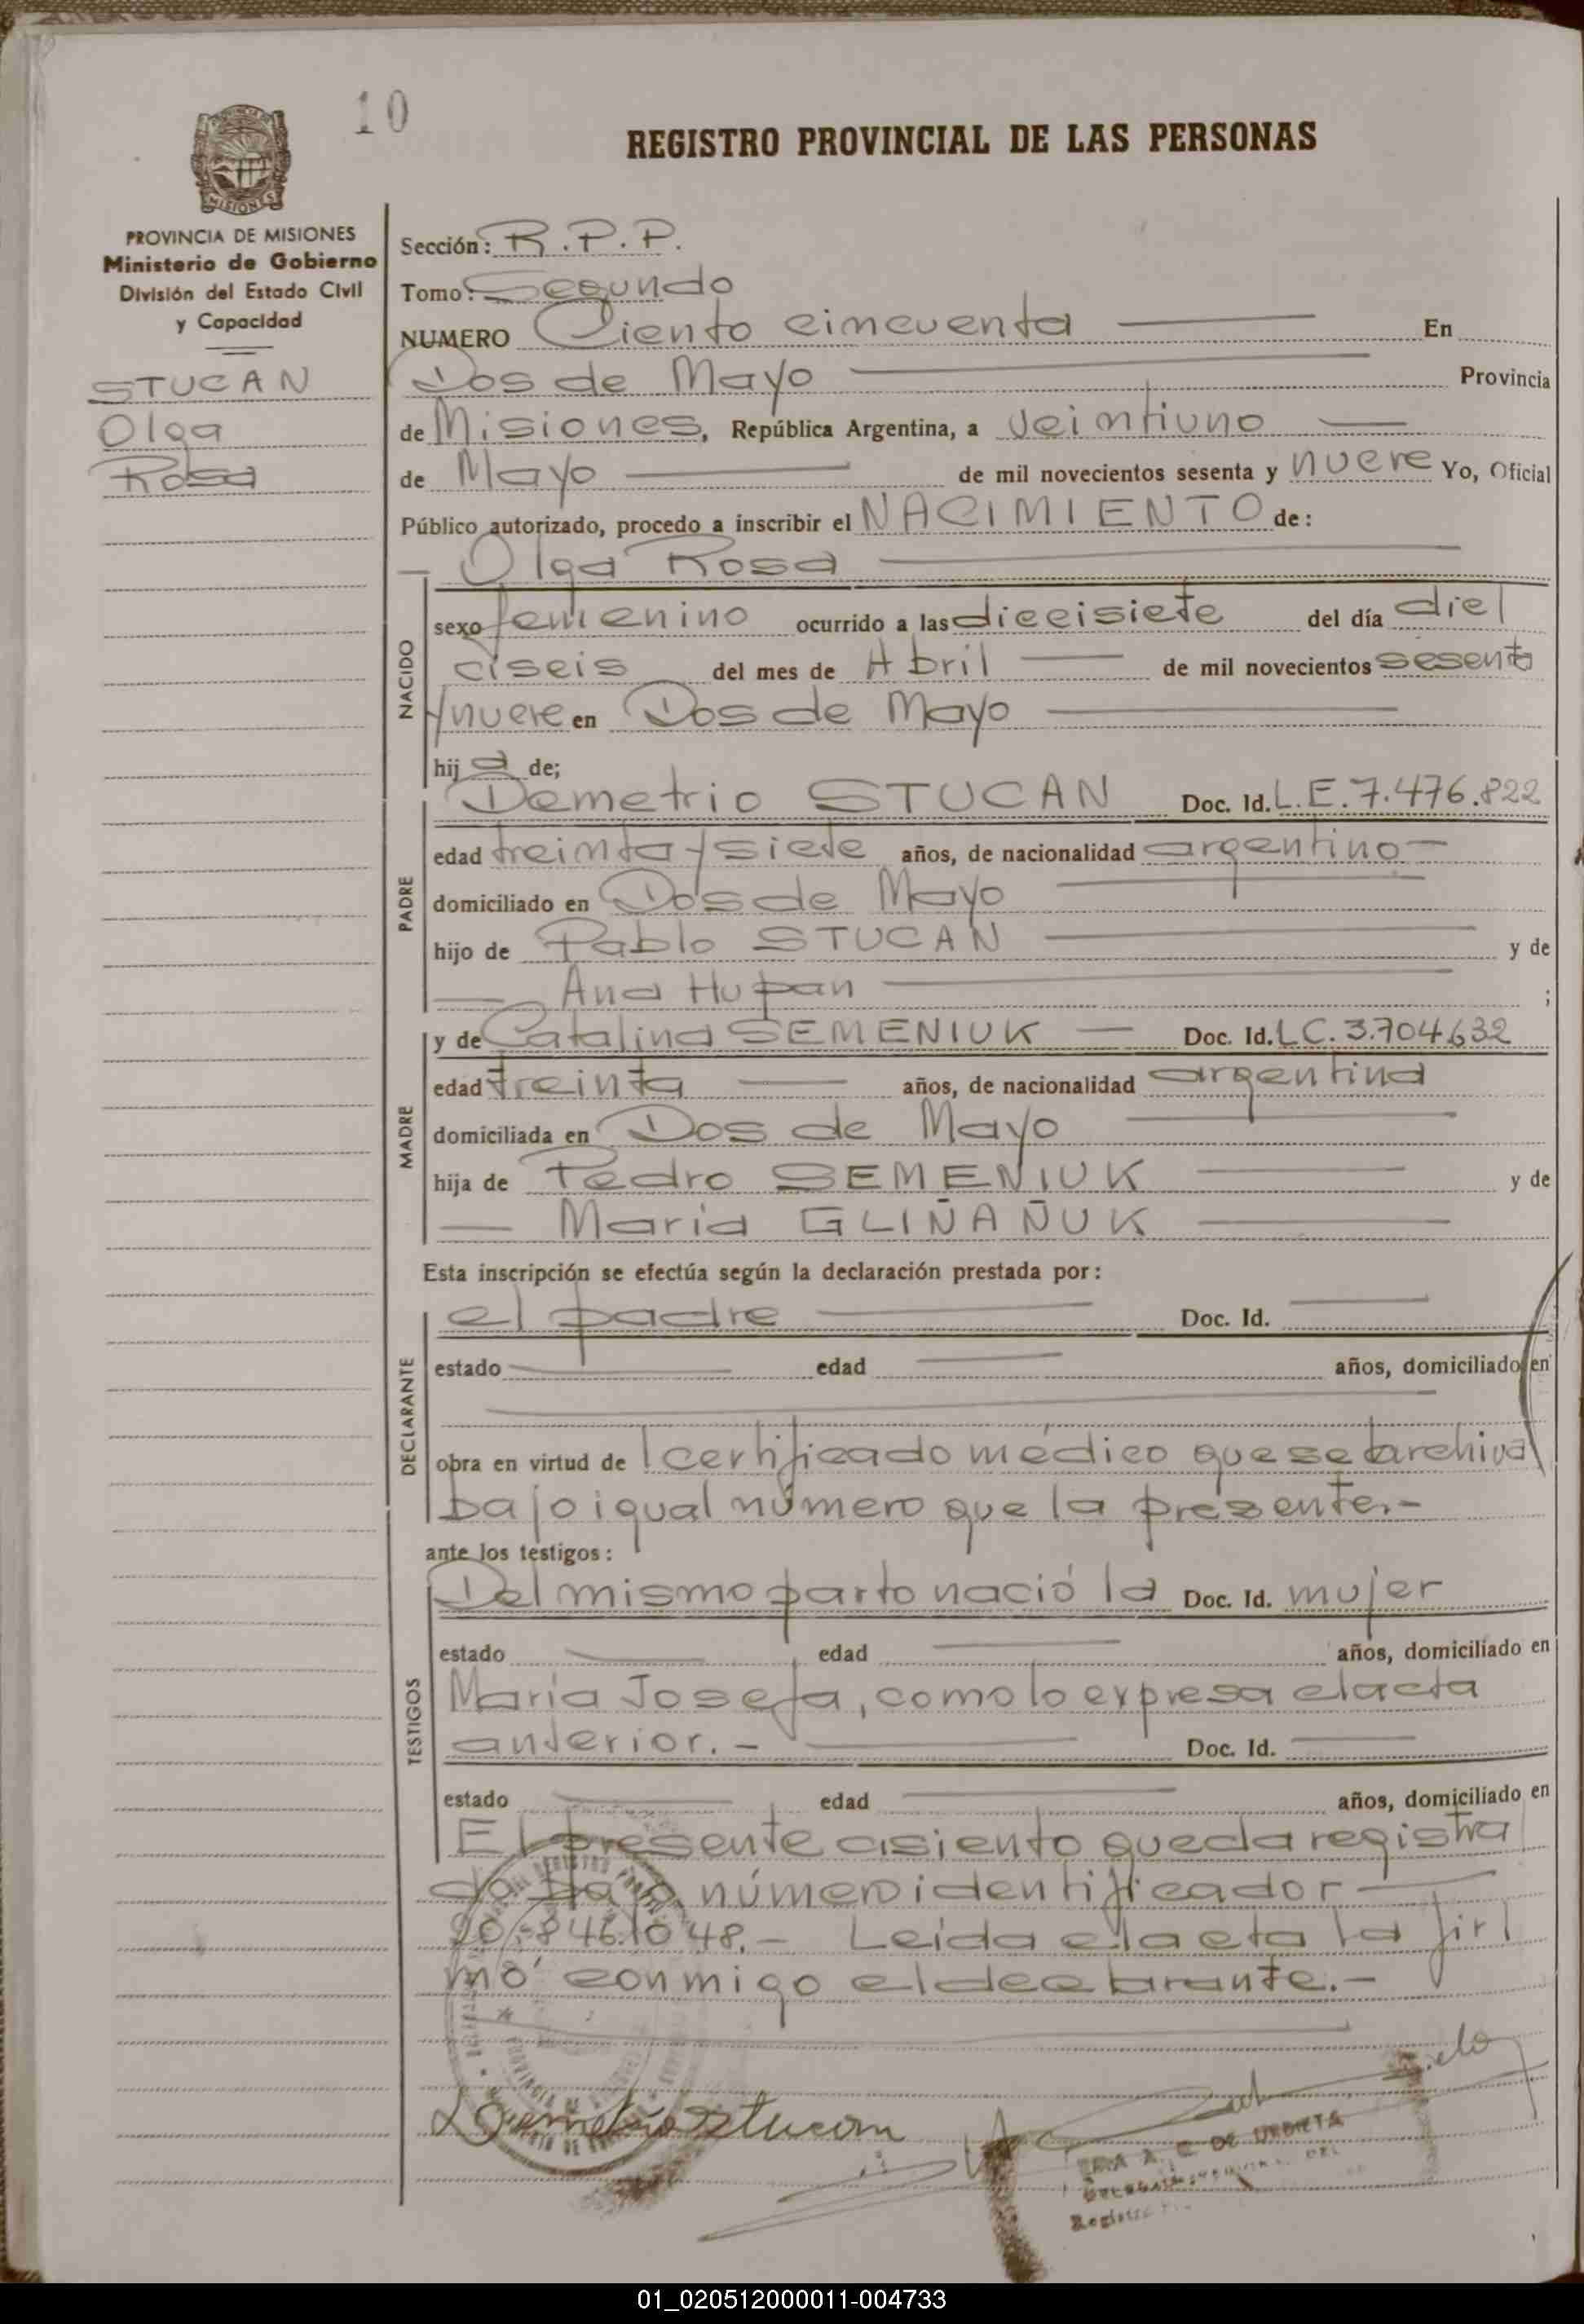 10
REGISTRO PROVINCIAL DE LAS PERSONAS
MISIONES
PROVINCIA DE MISIONES
Ministerio de Gobierno
División del Estado Civil
y Capacidad
STUCAN
Olga
Rosa
Sección: R.P.P.
Tomo: Segundo
NUMERO Ciento cincuenta En
Dos de Mayo Provincia
de Misiones, República Argentina, a Veintiuno
de Mayo de mil novecientos sesenta y nueve Yo, Oficial
Público autorizado, procedo a inscribir el NACIMIENTO de:
Olga Rosa
NACIDO
sexo femenino ocurrido a las diecisiete del día die|
ciseis del mes de Abril de mil novecientos sesenta
y nueve en Dos de Mayo
hija de;
PADRE
Demetrio STUCAN Doc. Id. L.E. 7.476.822
edad treinta y siete años, de nacionalidad argentino
domiciliado en Dos de Mayo
hijo de Pablo STUCAN y de
Ana Hupan ;
MADRE
y de Catalina SEMENIUK Doc. Id. L.C. 3.704.632
edad treinta años, de nacionalidad argentina
domiciliada en Dos de Mayo
hija de Pedro SEMENIUK y de
Maria GLIÑAÑUK
Esta inscripción se efectúa según la declaración prestada por:
DECLARANTE
el padre Doc. Id.
estado edad años, domiciliado en
obra en virtud de l certificado médico que se archiva
bajo igual número que la presente.-
ante los testigos:
TESTIGOS
Del mismo parto nació la Doc. Id. mujer
estado edad años, domiciliado en
María Josefa, como lo expresa el acta
anterior.- Doc. Id.
estado edad años, domiciliado en
El presente asiento queda registra
do bajo número identificador
20.846.048.- Leída el acta la fir|
mó conmigo el declarante.-
Demetrio Stucan
A. C. DE URBIETA
01_020512000011-004733